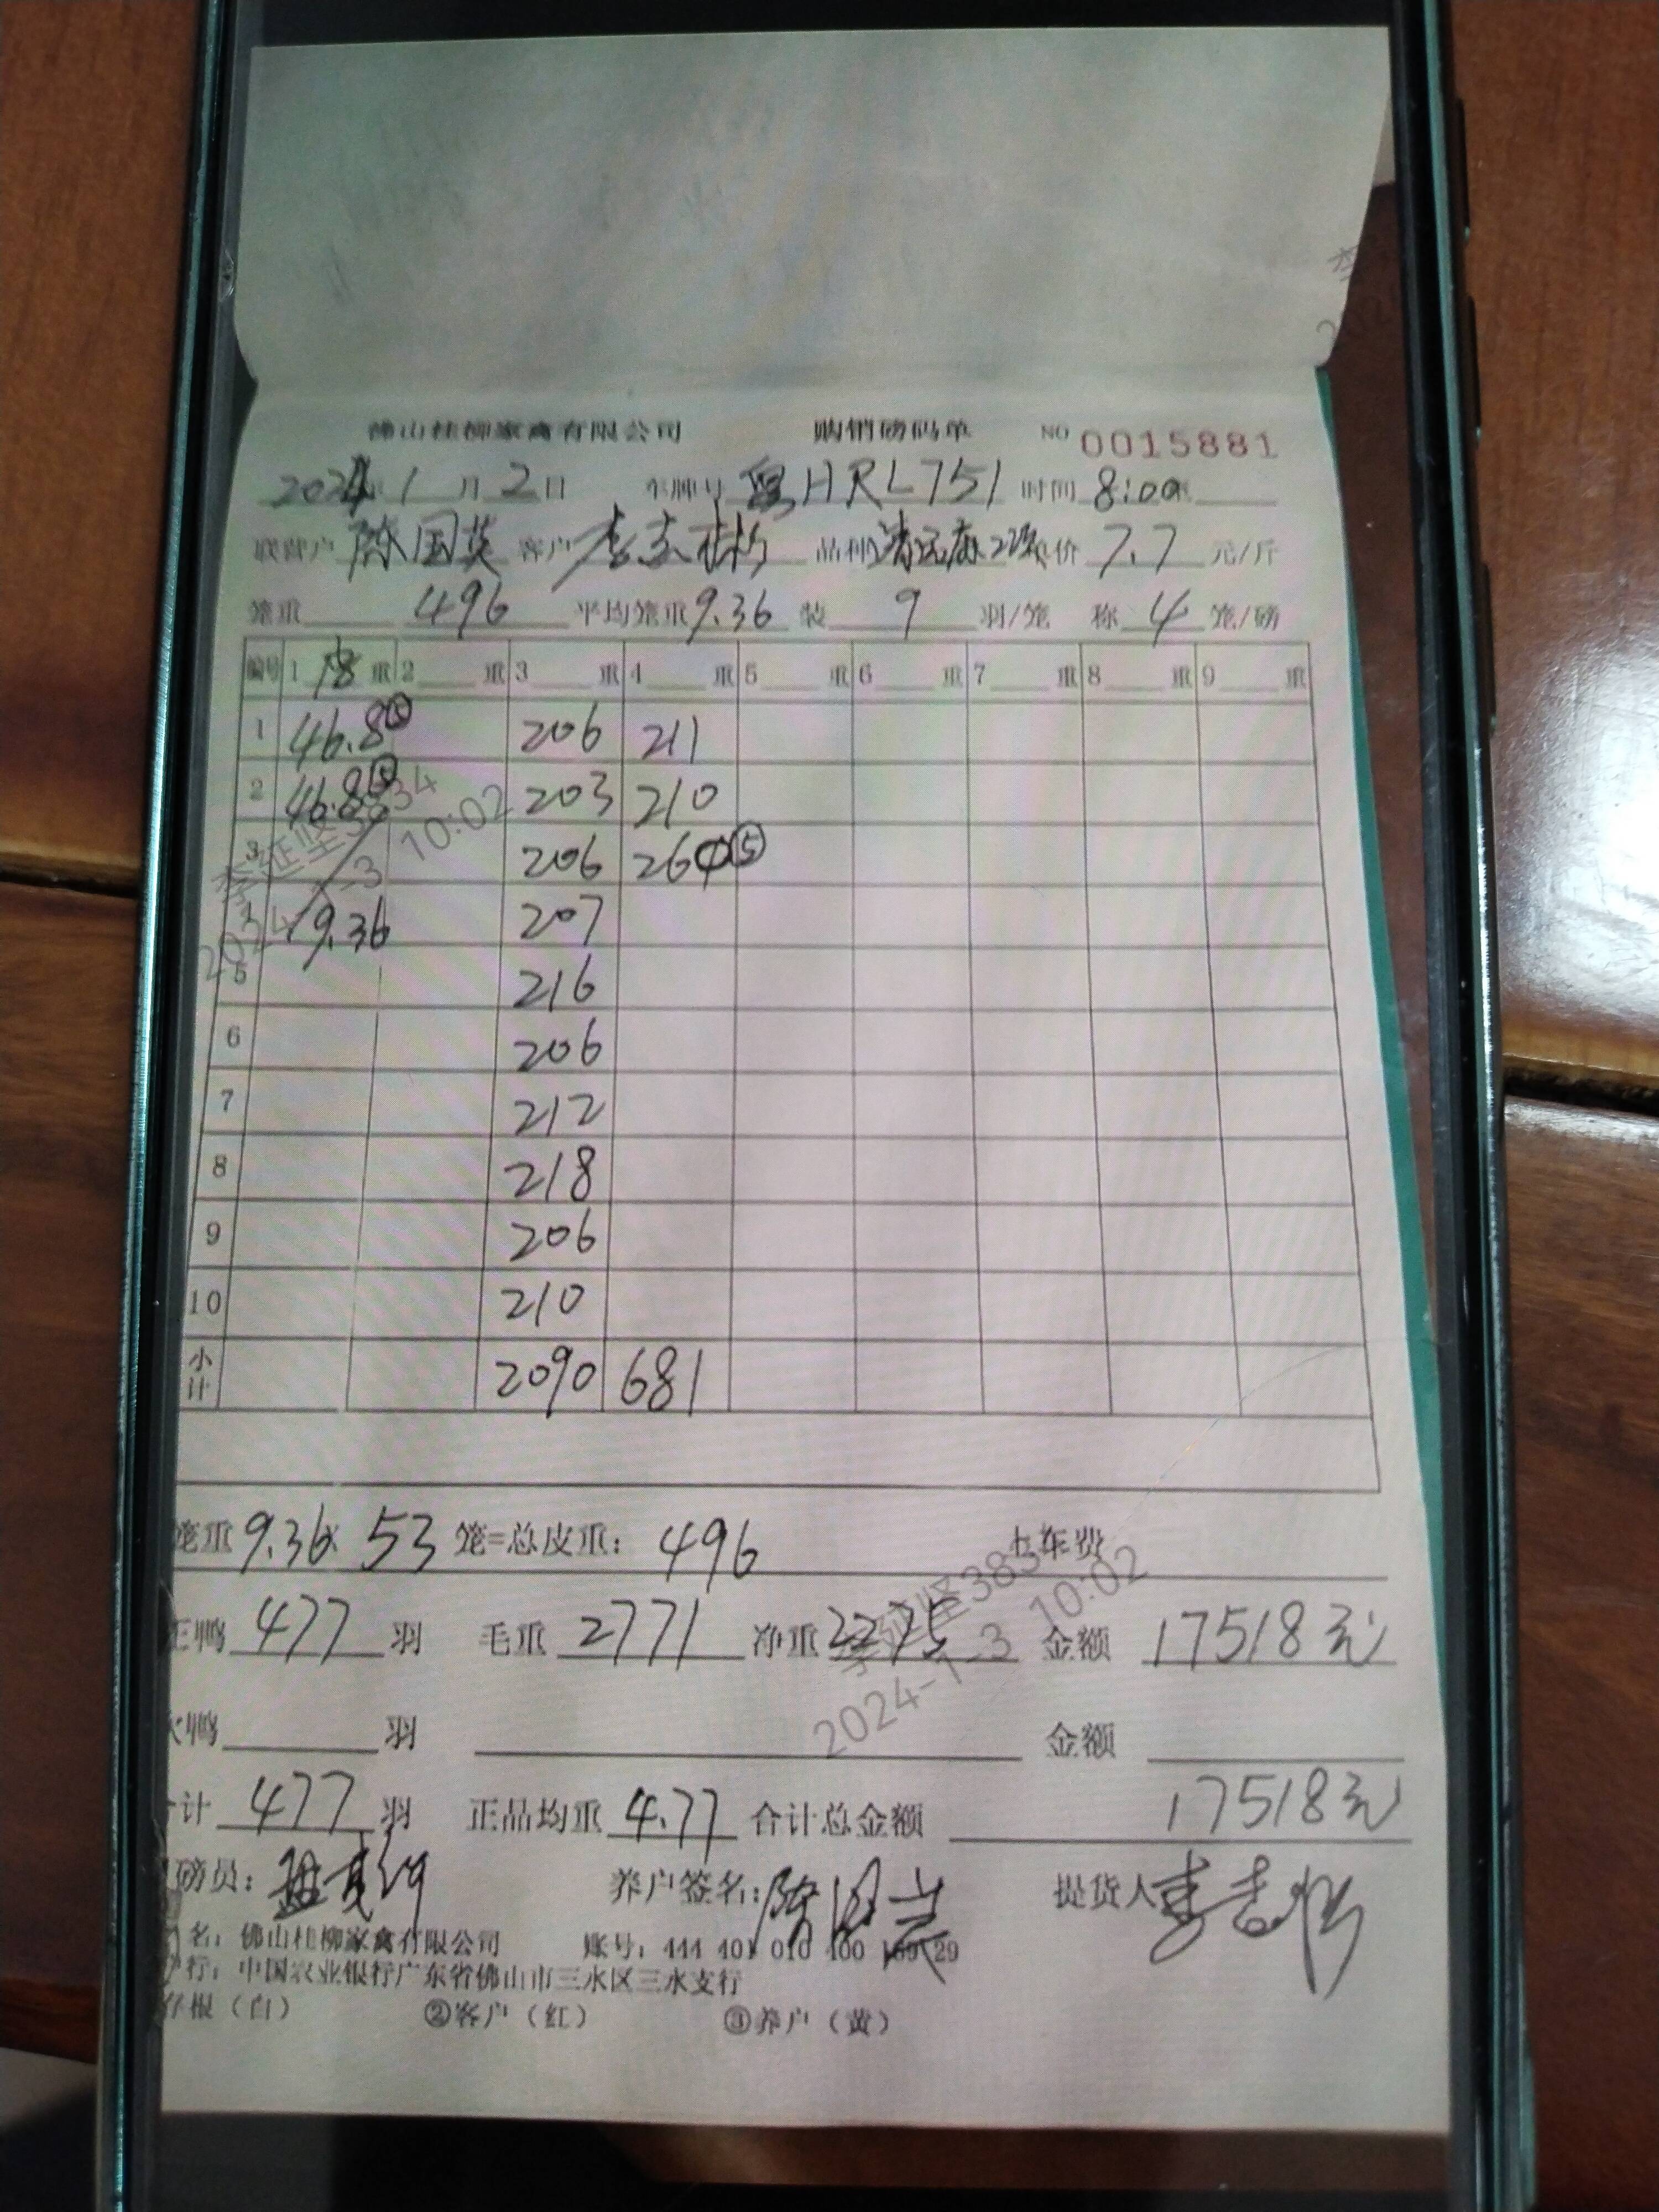 佛山桂柳家禽有限公司 购销磅码单 NO 0015881
2024年1月2日 车牌号 粤HRL751 时间 8:00
联营户 陈国英 客户 品种 单价 7.7 元/斤
笼重 496 平均笼重 9.36 装 9 羽/笼 称 4 笼/磅
编号 1 皮重 2 重 3 重 4 重 5 重 6 重 7 重 8 重 9 重
1 46.8⑤ 206 211
2 46.8⑤ 203 210
3 206 260⑤
4 9.36 207
5 216
6 206
7 212
8 218
9 206
10 210
小计 2090 681
笼重 9.36x 53 笼=总皮重: 496 上车费
正鸭 477 羽 毛重 2771 净重 2275 金额 17518元
鸭 羽 金额
计 477 羽 正品均重 4.77 合计总金额 17518元
磅员: 养户签名: 提货人
名: 佛山桂柳家禽有限公司 账号: 444 401 010 400
行: 中国农业银行广东省佛山市三水区三水支行
存根(白) ②客户(红) ③养户(黄)
李延坚3834
2024-1-3 10:02
李延坚383
2024-1-3 10:02